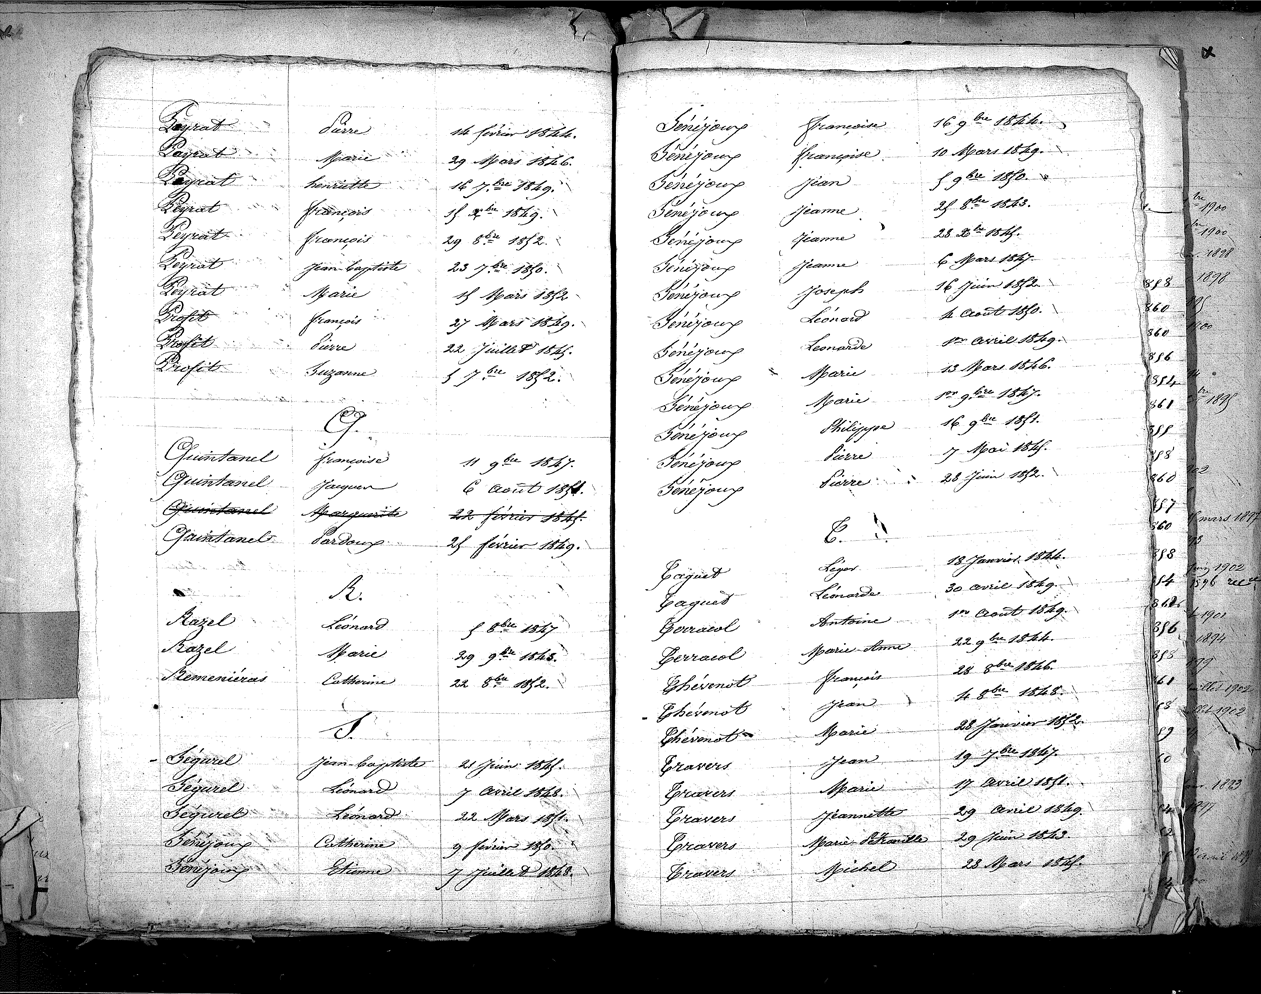 Peyrat Pierre 14 février 1844.
Peyrat Marie 29 Mars 1846.
Peyrat henriette 16 7.bre 1849.
Peyrat françois 15 Xbre 1849.
Peyrat françois 29 8bre 1852.
Peyrat Jean-baptiste 23 7.bre 1850.
Peyrat Marie 15 Mars 1852
Profit françois 27 Mars 1849.
Profit Pierre 22 Juillet 1845.
Profit Suzanne 5 7.bre 1852.
Q.
Quintanel françoise 11 9bre 1847.
Quintanel Jacques 6 Août 1851.
Quintanel Marguerite 22 février 1845.
Quintanel Pardoux 25 février 1849.
R.
Razel Léonard 5 8bre 1847
Razel Marie 29 9bre 1843.
Remeniéras Catherine 22 8bre 1852.
S.
Ségurel Jean-baptiste 21 Juin 1845.
Ségurel Léonard 7 Avril 1848.
Ségurel Léonard 22 Mars 1851.
Sénéjoux Catherine 9 février 1850.
Sénéjoux Etienne 7 Juillet 1848.
Sénéjoux françoise 16 9bre 1844.
Sénéjoux françoise 10 Mars 1849.
Sénéjoux Jean 5 9bre 1850.
Sénéjoux Jeanne 25 8bre 1843.
Sénéjoux Jeanne 28 Xbre 1845.
Sénéjoux Jeanne 6 Mars 1847
Sénéjoux Joseph 16 Juin 1852
Sénéjoux Léonard 4 Août 1850.
Sénéjoux Léonarde 1er Avril 1849.
Sénéjoux Marie 13 Mars 1846.
Sénéjoux Marie 1er 9.bre 1847.
Sénéjoux Philippe 16 9bre 1851.
Sénéjoux Pierre 7 Mai 1845.
Sénéjoux Pierre 28 Juin 1852.
T.
Taguet Léger 18 Janvier 1844.
Taguet Léonarde 30 Avril 1849.
Terracol Antoine 1er Août 1849.
Terracol Marie-Anne 22 9bre 1844.
Thévenot françois 28 8bre 1846
Thévenot Jean 4 8bre 1848.
Thévenot Marie 28 Janvier 1852
Travers Jean 19 7bre 1847.
Travers Marie 17 Avril 1851.
Travers Jeannette 29 Avril 1849
Travers Marie 29 Juin 1843
Travers Michel 23 Mars 1845.